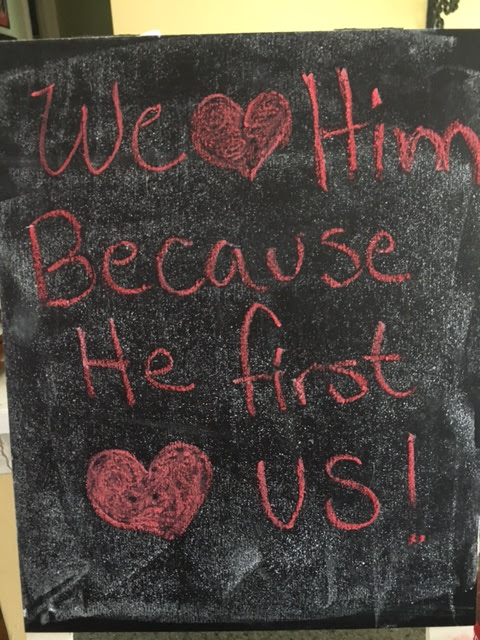 We ❤ Him
Because
He first
❤ us!